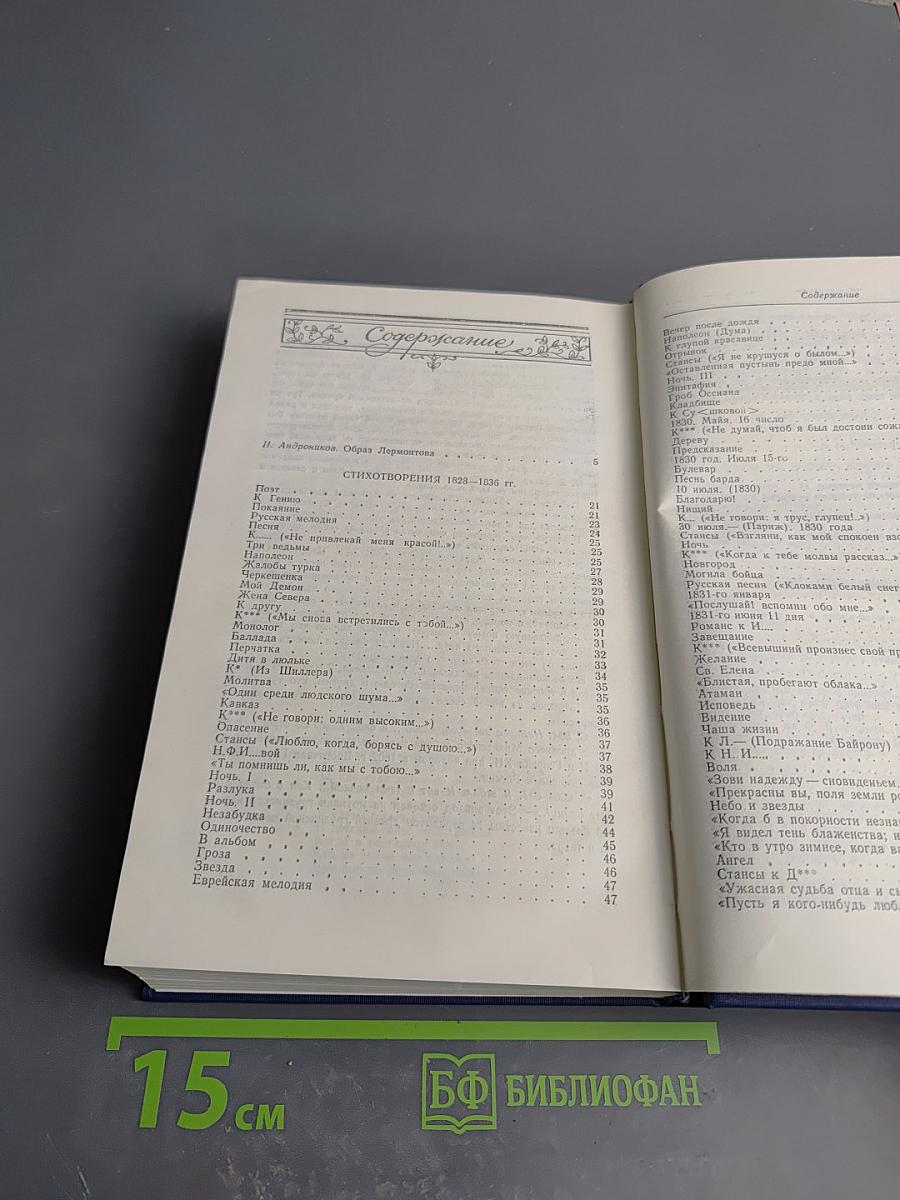 Содержание
И. Андроников. Образ Лермонтова . . . 5
СТИХОТВОРЕНИЯ 1828—1836 гг.
Поэт . . . 21
К Гению . . . 21
Покаяние . . . 23
Русская мелодия . . . 24
Песня . . . 25
К...... («Не привлекай меня красой!..») . . . 25
Три ведьмы . . . 25
Наполеон . . . 27
Жалобы турка . . . 28
Черкешенка . . . 29
Мой Демон . . . 29
Жена Севера . . . 30
К другу . . . 30
К*** («Мы снова встретились с тобой...») . . . 31
Монолог . . . 31
Баллада . . . 32
Перчатка . . . 33
Дитя в люльке . . . 34
К* (Из Шиллера) . . . 35
Молитва . . . 35
«Один среди людского шума...» . . . 35
Кавказ . . . 36
К*** («Не говори: одним высоким...») . . . 36
Опасение . . . 37
Стансы («Люблю, когда, борясь с душою...») . . . 37
Н.Ф.И....вой . . . 38
«Ты помнишь ли, как мы с тобою...» . . . 39
Ночь. I . . . 39
Разлука . . . 41
Ночь. II . . . 42
Незабудка . . . 44
Одиночество . . . 45
В альбом . . . 46
Гроза . . . 46
Звезда . . . 47
Еврейская мелодия . . . 47
Содержание
Вечер после дождя
Наполеон (Дума)
К глупой красавице
Отрывок
Стансы («Я не крушуся о былом...»)
«Оставленная пустынь предо мной...»
Ночь. III
Эпитафия
Гроб Оссиана
Кладбище
К Су<шковой>
1830. Майя. 16 число
К*** («Не думай, чтоб я был достоин сож
Дереву
Предсказание
1830 год. Июля 15-го
Булевар
Песнь барда
10 июля. (1830)
Благодарю!
Нищий
К... («Не говори: я трус, глупец!..»)
30 июля.— (Париж). 1830 года
Стансы («Взгляни, как мой спокоен взо
Ночь
К*** («Когда к тебе молвы рассказ...»
Новгород
Могила бойца
Русская песня («Клоками белый снег
1831-го января
«Послушай! вспомни обо мне...»
1831-го июня 11 дня
Романс к И....
Завещание
К*** («Всевышний произнес свой пр
Желание
Св. Елена
«Блистая, пробегают облака...»
Атаман
Исповедь
Видение
Чаша жизни
К Л.— (Подражание Байрону)
К Н. И.....
Воля
«Зови надежду — сновиденьем,
«Прекрасны вы, поля земли ро
Небо и звезды
«Когда б в покорности незна
«Я видел тень блаженства; н
«Кто в утро зимнее, когда ва
Ангел
Стансы к Д***
«Ужасная судьба отца и сы
«Пусть я кого-нибудь любл
15 см
БФ БИБЛИОФАН